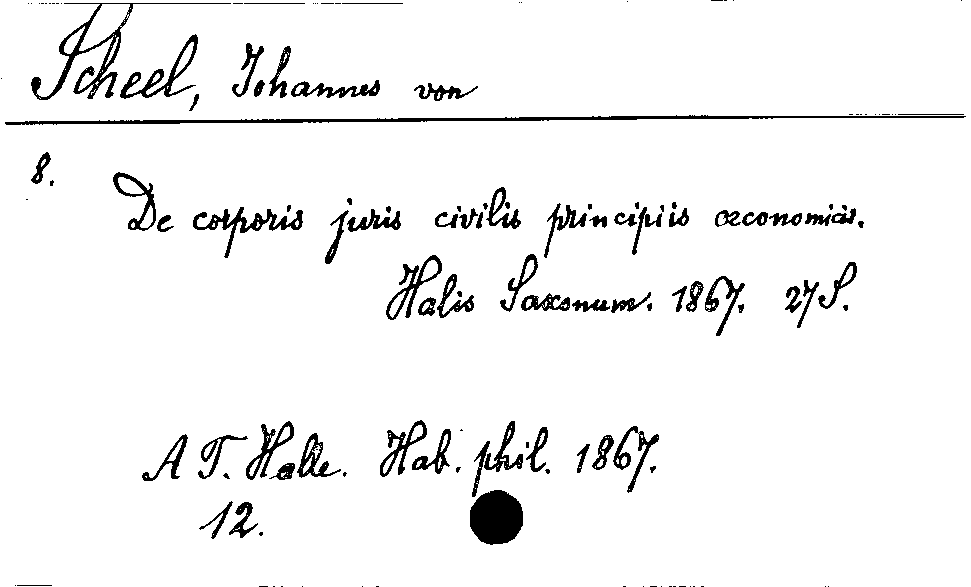 Scheel, Johannes von
8.
De corporis juris civilis principiis œconomicis.
Halis Saxonum. 1867. 27 S.
A T. Halle. Hab. phil. 1867.
12.